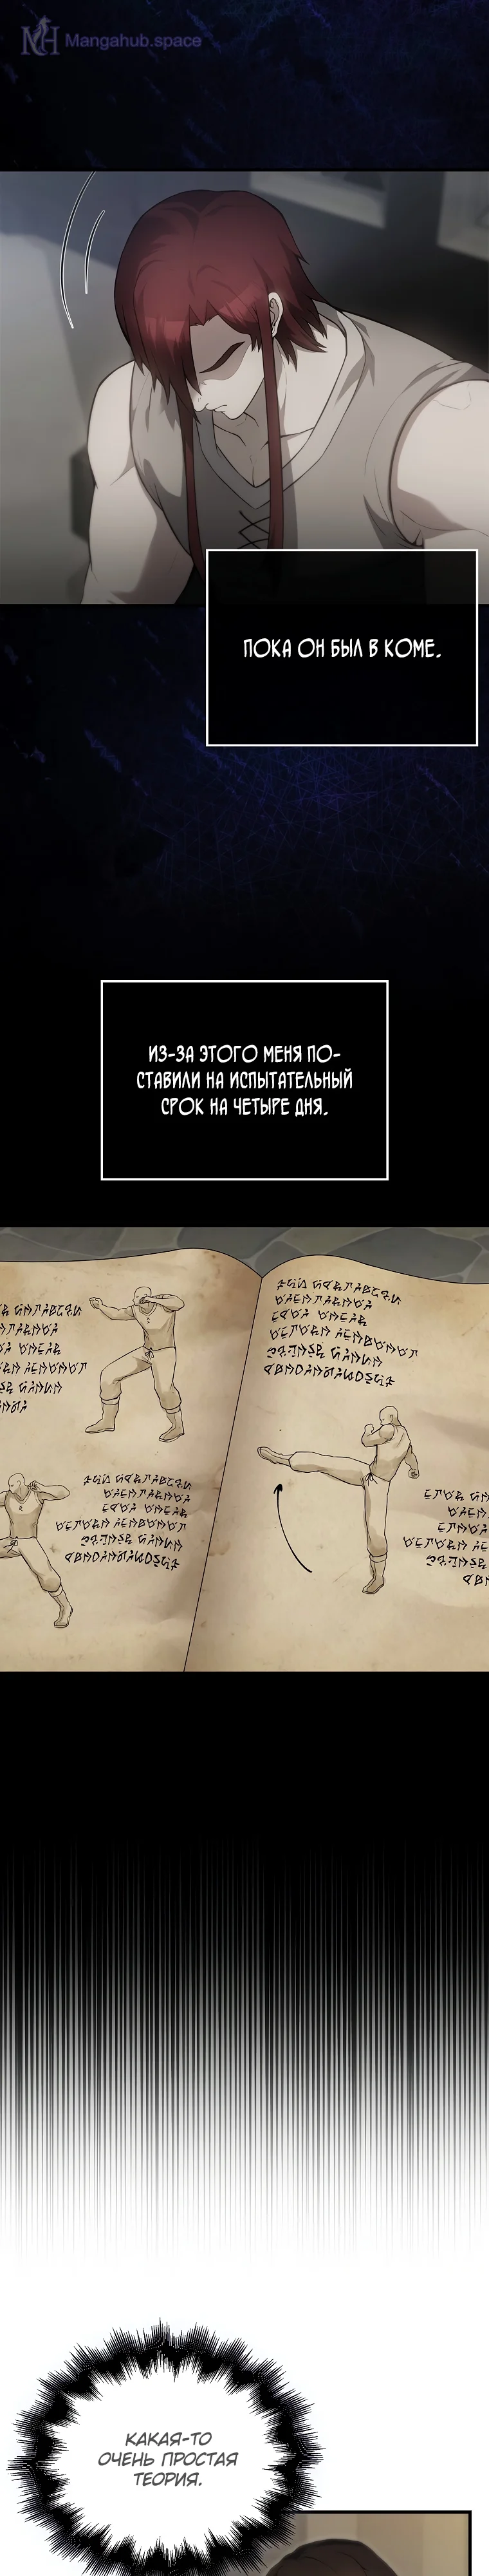 Mangahub.space
ПОКА ОН БЫЛ В КОМЕ.
ИЗ-ЗА ЭТОГО МЕНЯ ПО-
СТАВИЛИ НА ИСПЫТАТЕЛЬНЫЙ
СРОК НА ЧЕТЫРЕ ДНЯ.
КАКАЯ-ТО
ОЧЕНЬ ПРОСТАЯ
ТЕОРИЯ.